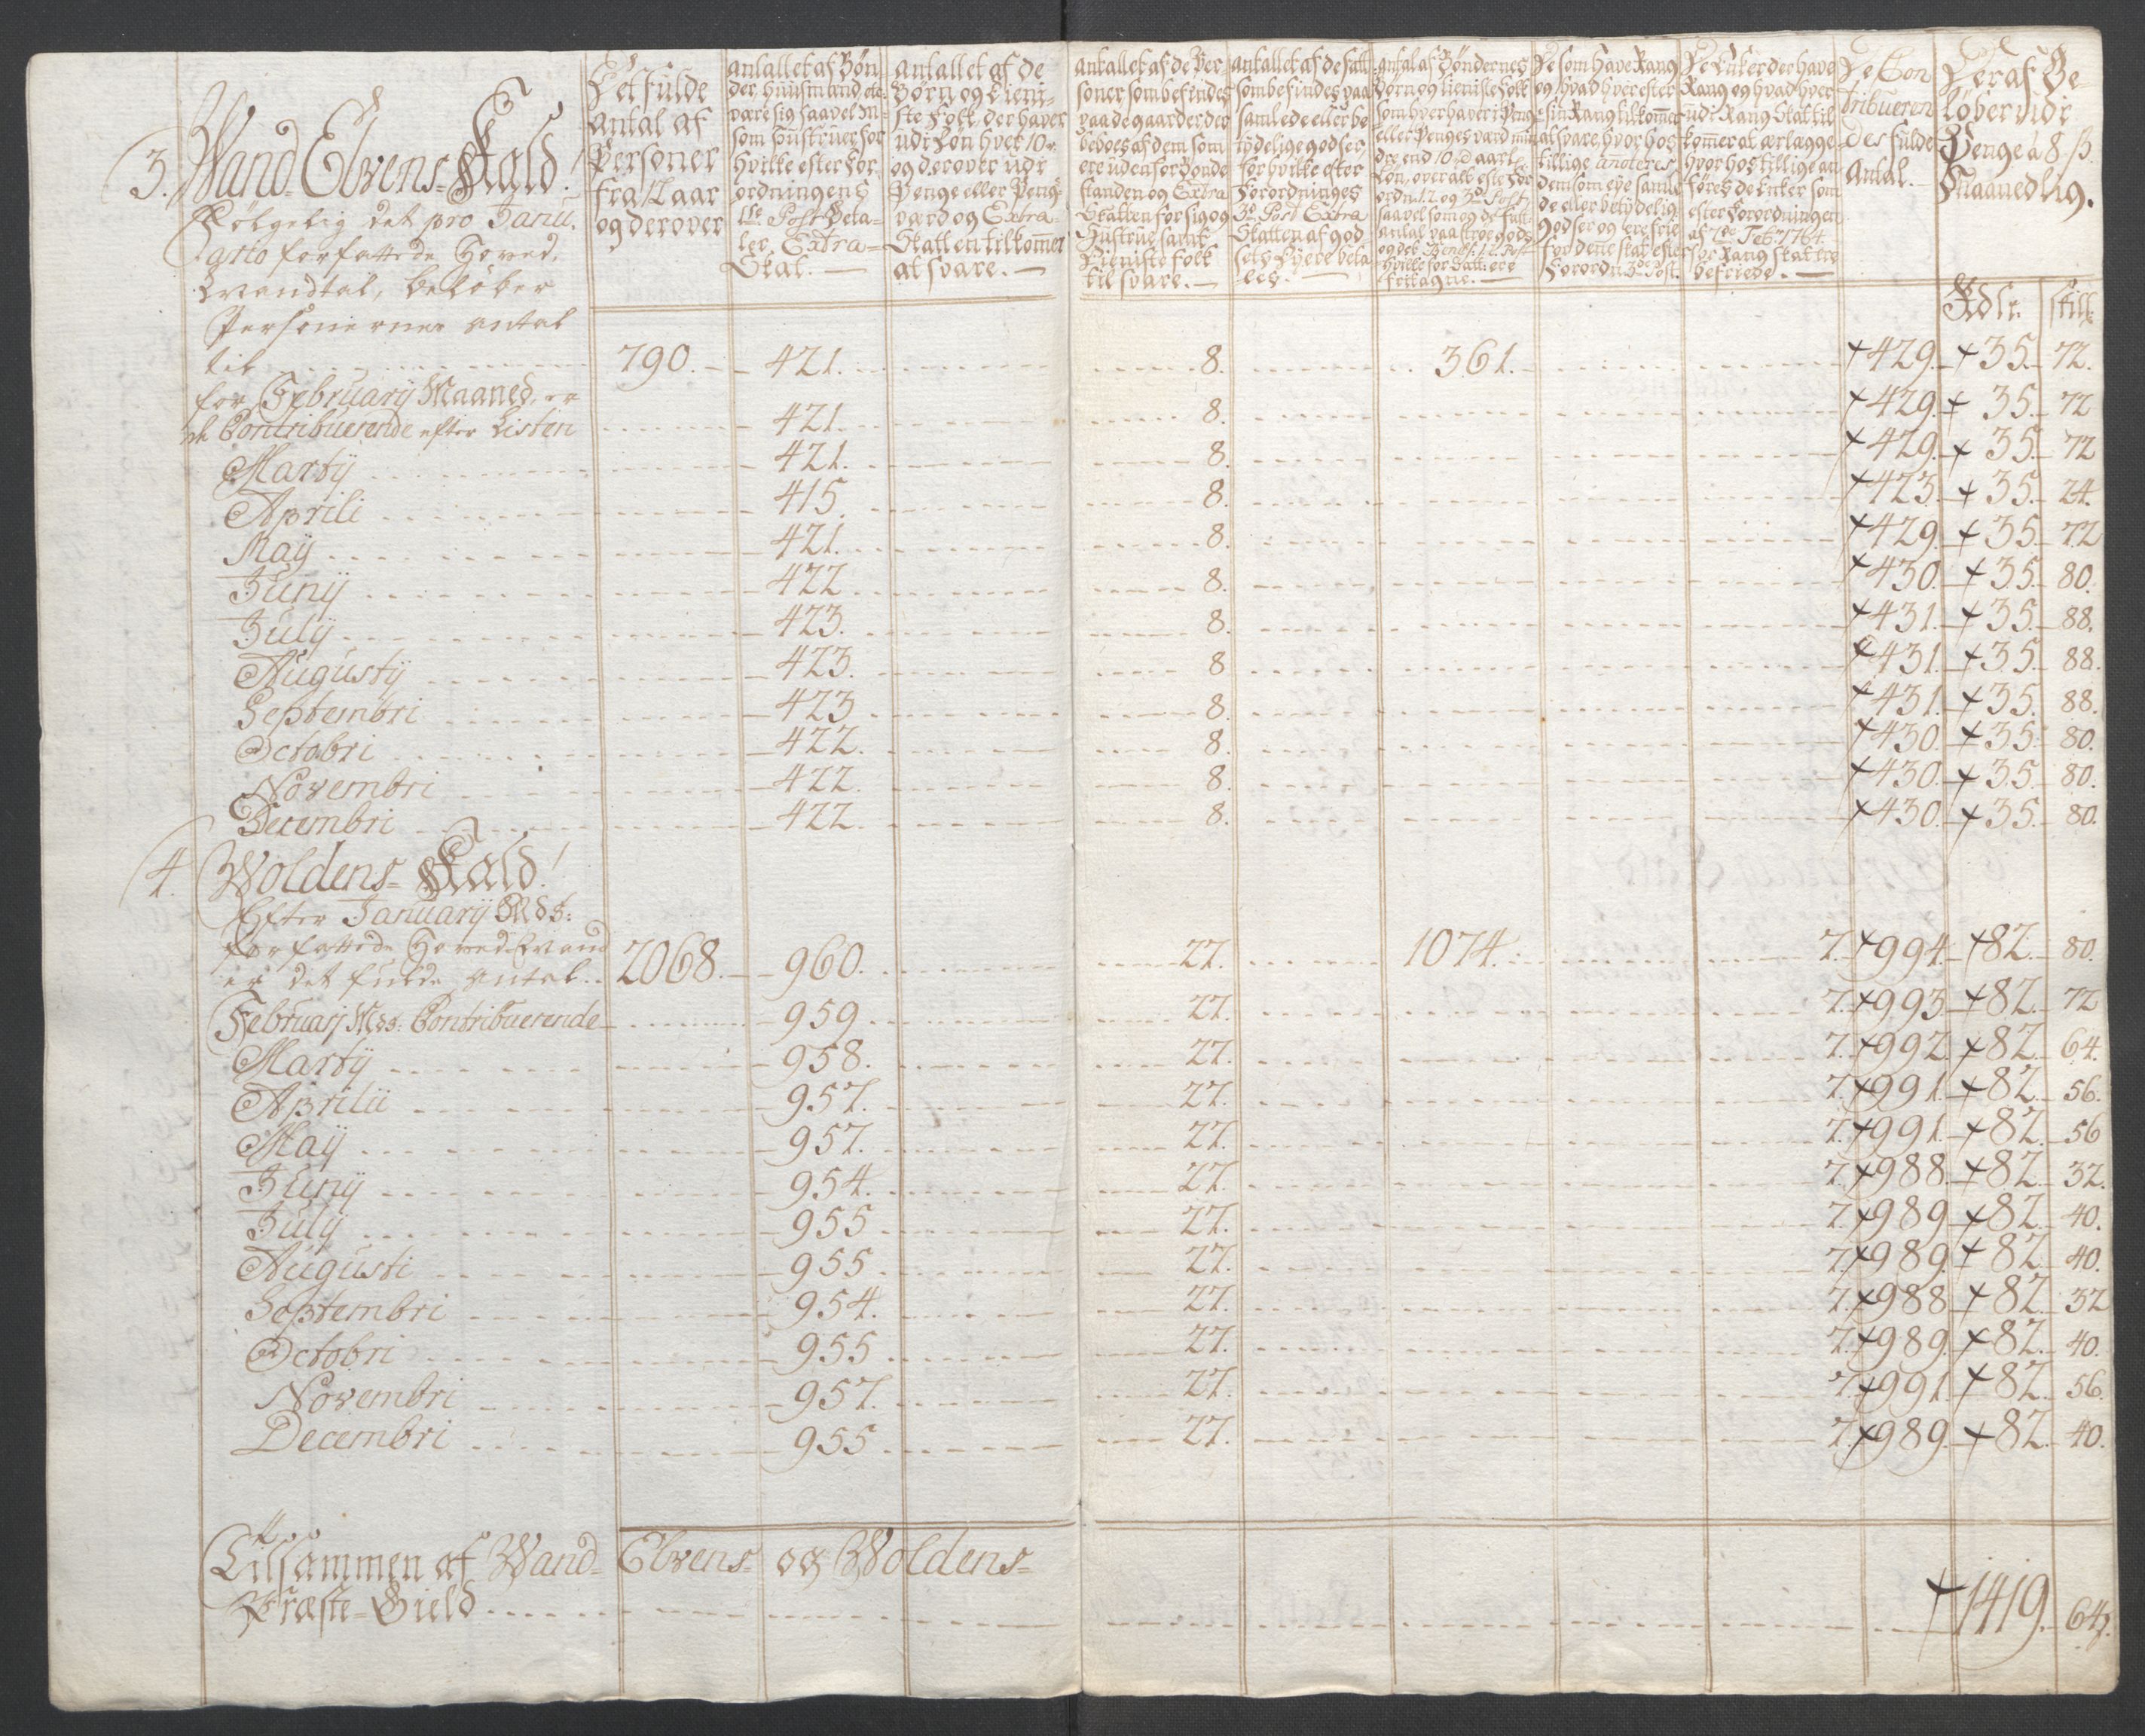 Det fulde
Antal af
Personer
fra 12 aar
og derover
Antallet af Bøn-
der, Huusmænd etc:
være sig saavel M-
som Hustruer, for
hvilke efter For-
ordningens
1te Post Beta-
les Extra-
Skat. —
Antallet af de
Børn og Tieni-
ste Folk, der haver
udi Løn hver 10 r
og derover udi
Penge eller Peng-
værd og Extra-
Skatten tilkom̅er
at svare. —
Antallet af de Per
soner som befindes
paa de gaarder, der
beboes af dem som
ere uden for Bonde
standen og Extra
Skatten for sig og
Hustrue samt
Tieniste folk
til svare. —
Antallet af de Fatt
som befindes paa
samlede eller be
tydelige godser,
for hvilke efter
Forordninges
3de Post Extra
Skatten af god
sets Eyere beta
les. —
Antal af Bøndernes
Børn og tieniste Folk
som hver haver i Peng
eller Penges værd min
dre end 10 rd aarl:
Løn, over alt efter For
ordn: 1. 2. og 3de Post,
saavel som og de fatt:
antal paa strøe gods
De som have Rang
og hvad hver efter
sin Rang tilkom̅er
at svare, hvor hos
tillige anoteres
dem som eye samle
de eller betydelig
godser og ere frie
for denne skat efter
Forordn: 3de Post.
De Enker der have
Rang og hvad hver
udi Rang Skat til
kom̅er at erlægge
hvor hos tillige an
føres de Enker som
efter Forordningen
af 7de Febr: 1764
for Rang skat ere
befriede. —
De Con
tribueren
des fulde
Antal. —
Der af Be-
løber udi
Penge à 8 ß
Maanedlig.
Rdlr. skill:
3. Wand-Elvens-Kald!
Følgelig det pro Janu-
ario forfattede Hoved-
Mandtal, beløber
Personernes antal
til 790. 421. 8. 361. 429. 35. 72.
for February Maaned, er
de Contribuerende efter Listen 421. 8. 429. 35. 72
Marty 421. 8. 429. 35. 72
Aprili 415. 8. 423. 35. 24.
May 421. 8. 429. 35. 72
Juny 422 8. 430. 35. 80.
July 423. 8. 431. 35. 88.
Augusty 423. 8 431. 35. 88.
Septembri 423 8. 431. 35. 88.
Octobri 422. 8. 430. 35. 80.
Novembri 422. 8. 430. 35. 80.
Decembri 422. 8. 430. 35. 80.
4. Woldens-Kald!
Efter January Mds:
forfattede Hoved Mand
er det fulde antal 2068. 960. 27. 1074. 7. 994. 82. 80.
Februarj Mds: Contribuerende 959. 27. 7. 993 82. 72
Marty 958. 27. 7. 992. 82. 64.
Aprilii 957. 27. 7. 991. 82. 56.
May 957. 27. 7. 991. 82. 56
Juny 954. 27. 7. 988. 82. 32.
July 955 27. 7. 989. 82. 40.
Augusti 955 27. 7. 989. 82. 40.
Septembri 954. 27. 7. 988 82. 32
Octobri 955 27. 7. 989. 82. 40.
Novembri 957. 27. 7. 991. 82. 56.
Decembri 955 27. 7. 989. 82. 40.
Tilsammen af Wand- Elvens- og Woldens-
Præste-Gield 1419. 64